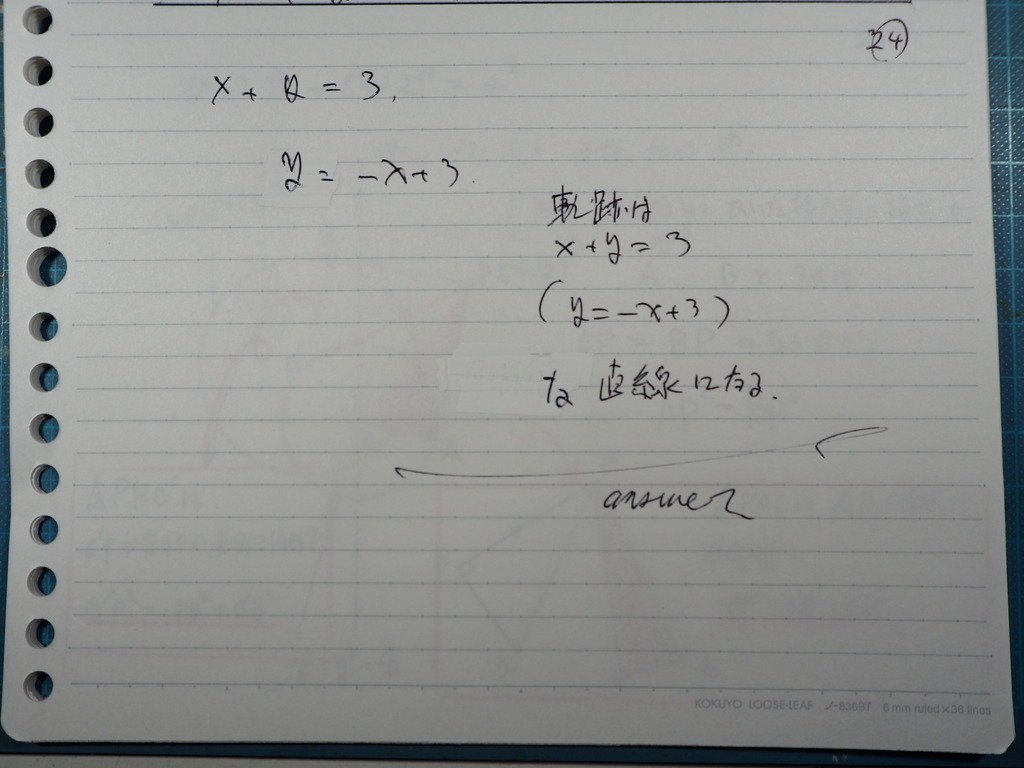 24
x + y = 3,
y = -x+3.
軌跡は
x + y = 3
(y = -x+3)
なる 直線になる.
answer
KOKUYO LOOSE-LEAF ノ-836BT 6 mm ruled×36 lines